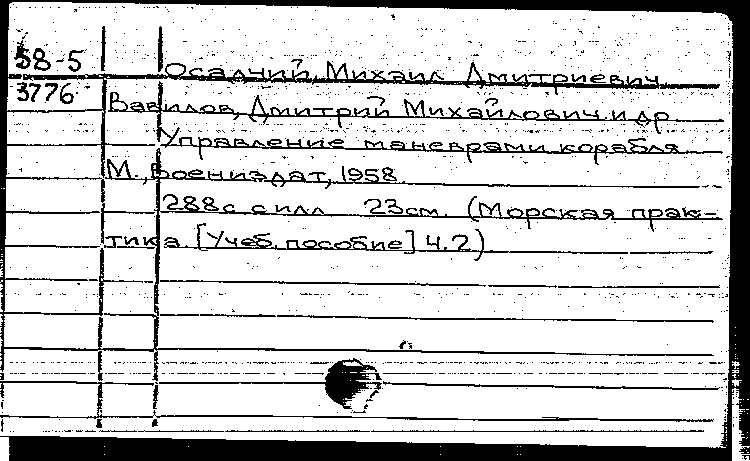 58-5 Осадчий, Михаил Дмитриевич
3776 Вавилов, Дмитрий Михайлович и др
Управление маневрами корабля
М., Воениздат, 1958
288с с илл 23см. (Морская прак-
тика. [Учеб. пособие] ч.2)